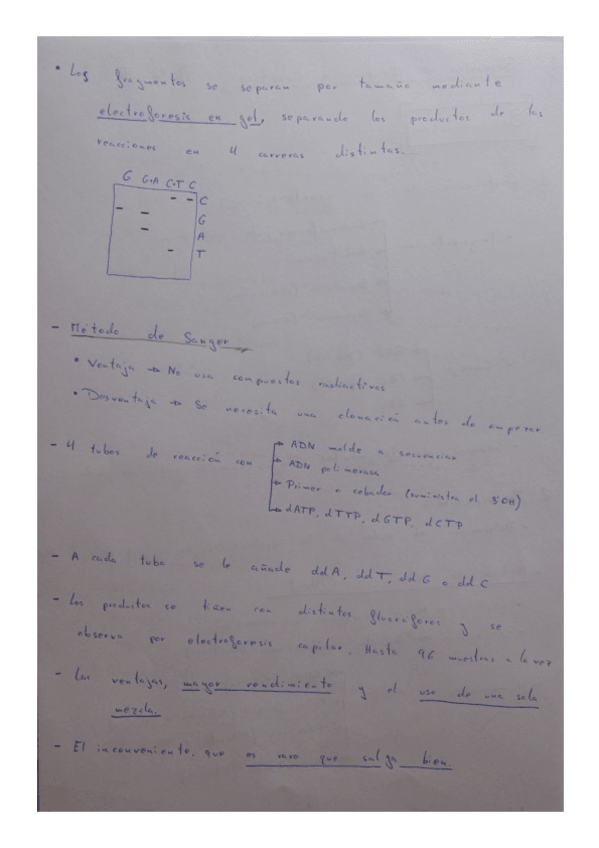 • Los fragmentos se separan por tamaño mediante
electroforesis en gel, separando los productos de las
reacciones en 4 carreras distintas.
G G+A C+T C
C
G
A
T
- Método de Sanger
• Ventaja → No usa compuestos radiactivos
• Desventaja → Se necesita una clonación antes de empezar
- 4 tubos de reacción con
→ ADN molde a secuenciar
→ ADN polimerasa
→ Primer o cebador (suministra el 3'OH)
→ dATP, dTTP, dGTP, dCTP
- A cada tubo se le añade ddA, ddT, ddG o ddC
- Los productos se tiñen con distintos fluoróforos y se
observa por electroforesis capilar. Hasta 96 muestras a la vez
- Las ventajas, mayor rendimiento y el uso de una sola
mezcla.
- El inconveniente, que es raro que salga bien.